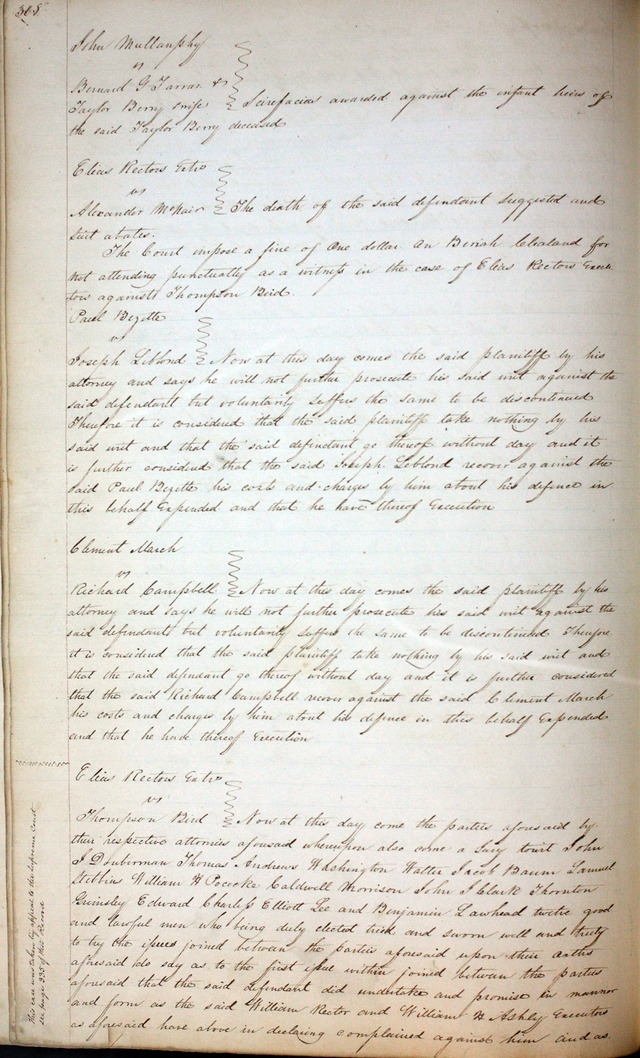 305
John Mullanphy
vs
Bernard G Farrar &
Taylor Berry Scirefacias awarded against the infant heirs of
the said Taylor Berry deceased
Elias Rectors Extrs
vs
Alexander McNair The death of the said defendant suggested and
suit abates.
The Court impose a fine of One dollar on Beriah Cleland for
not attending punctually as a witness in the case of Elias Rectors Execu
tors against Thompson Bird.
Paul Bezette
vs
Joseph Leblond Now at this day comes the said plaintiff by his
attorney and says he will not further prosecute his said writ against the
said defendant but voluntarily suffers the same to be discontinued
Therefore it is considered that the said plaintiff take nothing by his
said writ and that the said defendant go thereof without day and it
is further considered that the said Joseph Leblond recover against the
said Paul Bezette his costs and charges by him about his defence in
this behalf Expended and that he have thereof Execution
Clement March
vs
Richard Campbell Now at this day comes the said plaintiff by his
attorney and says he will not further prosecute his said writ against the
said defendant but voluntarily suffers the same to be discontinued Therefore
it is considered that the said plaintiff take nothing by his said writ and
that the said defendant go thereof without day and it is further considered
that the said Richard Campbell recover against the said Clement March
his costs and charges by him about his defence in this behalf Expended
and that he have thereof Execution
Elias Rectors Extrs
vs
Thompson Bird Now at this day come the parties aforesaid by
their respective attornies aforesaid whereupon also come a Jury to wit John
J Douberman Thomas Andrews Washington Walter Jacob Baum Samuel
Stebbins William H Pococke Caldwell Morrison John J Clark Thornton
Grimsley Edward Charless Elliott Lee and Benjamin Lawhead twelve good
and lawful men who being duly elected tried and sworn well and truly
to try the issues joined between the parties aforesaid upon their oaths
aforesaid do say as to the first issue within joined between the parties
aforesaid that the said defendant did undertake and promise in manner
and form as the said William Rector and William H Ashley Executors
as aforesaid have above in declaring complained against him and as
This case was taken by appeal to the Supreme Court
see page 335 of this Record